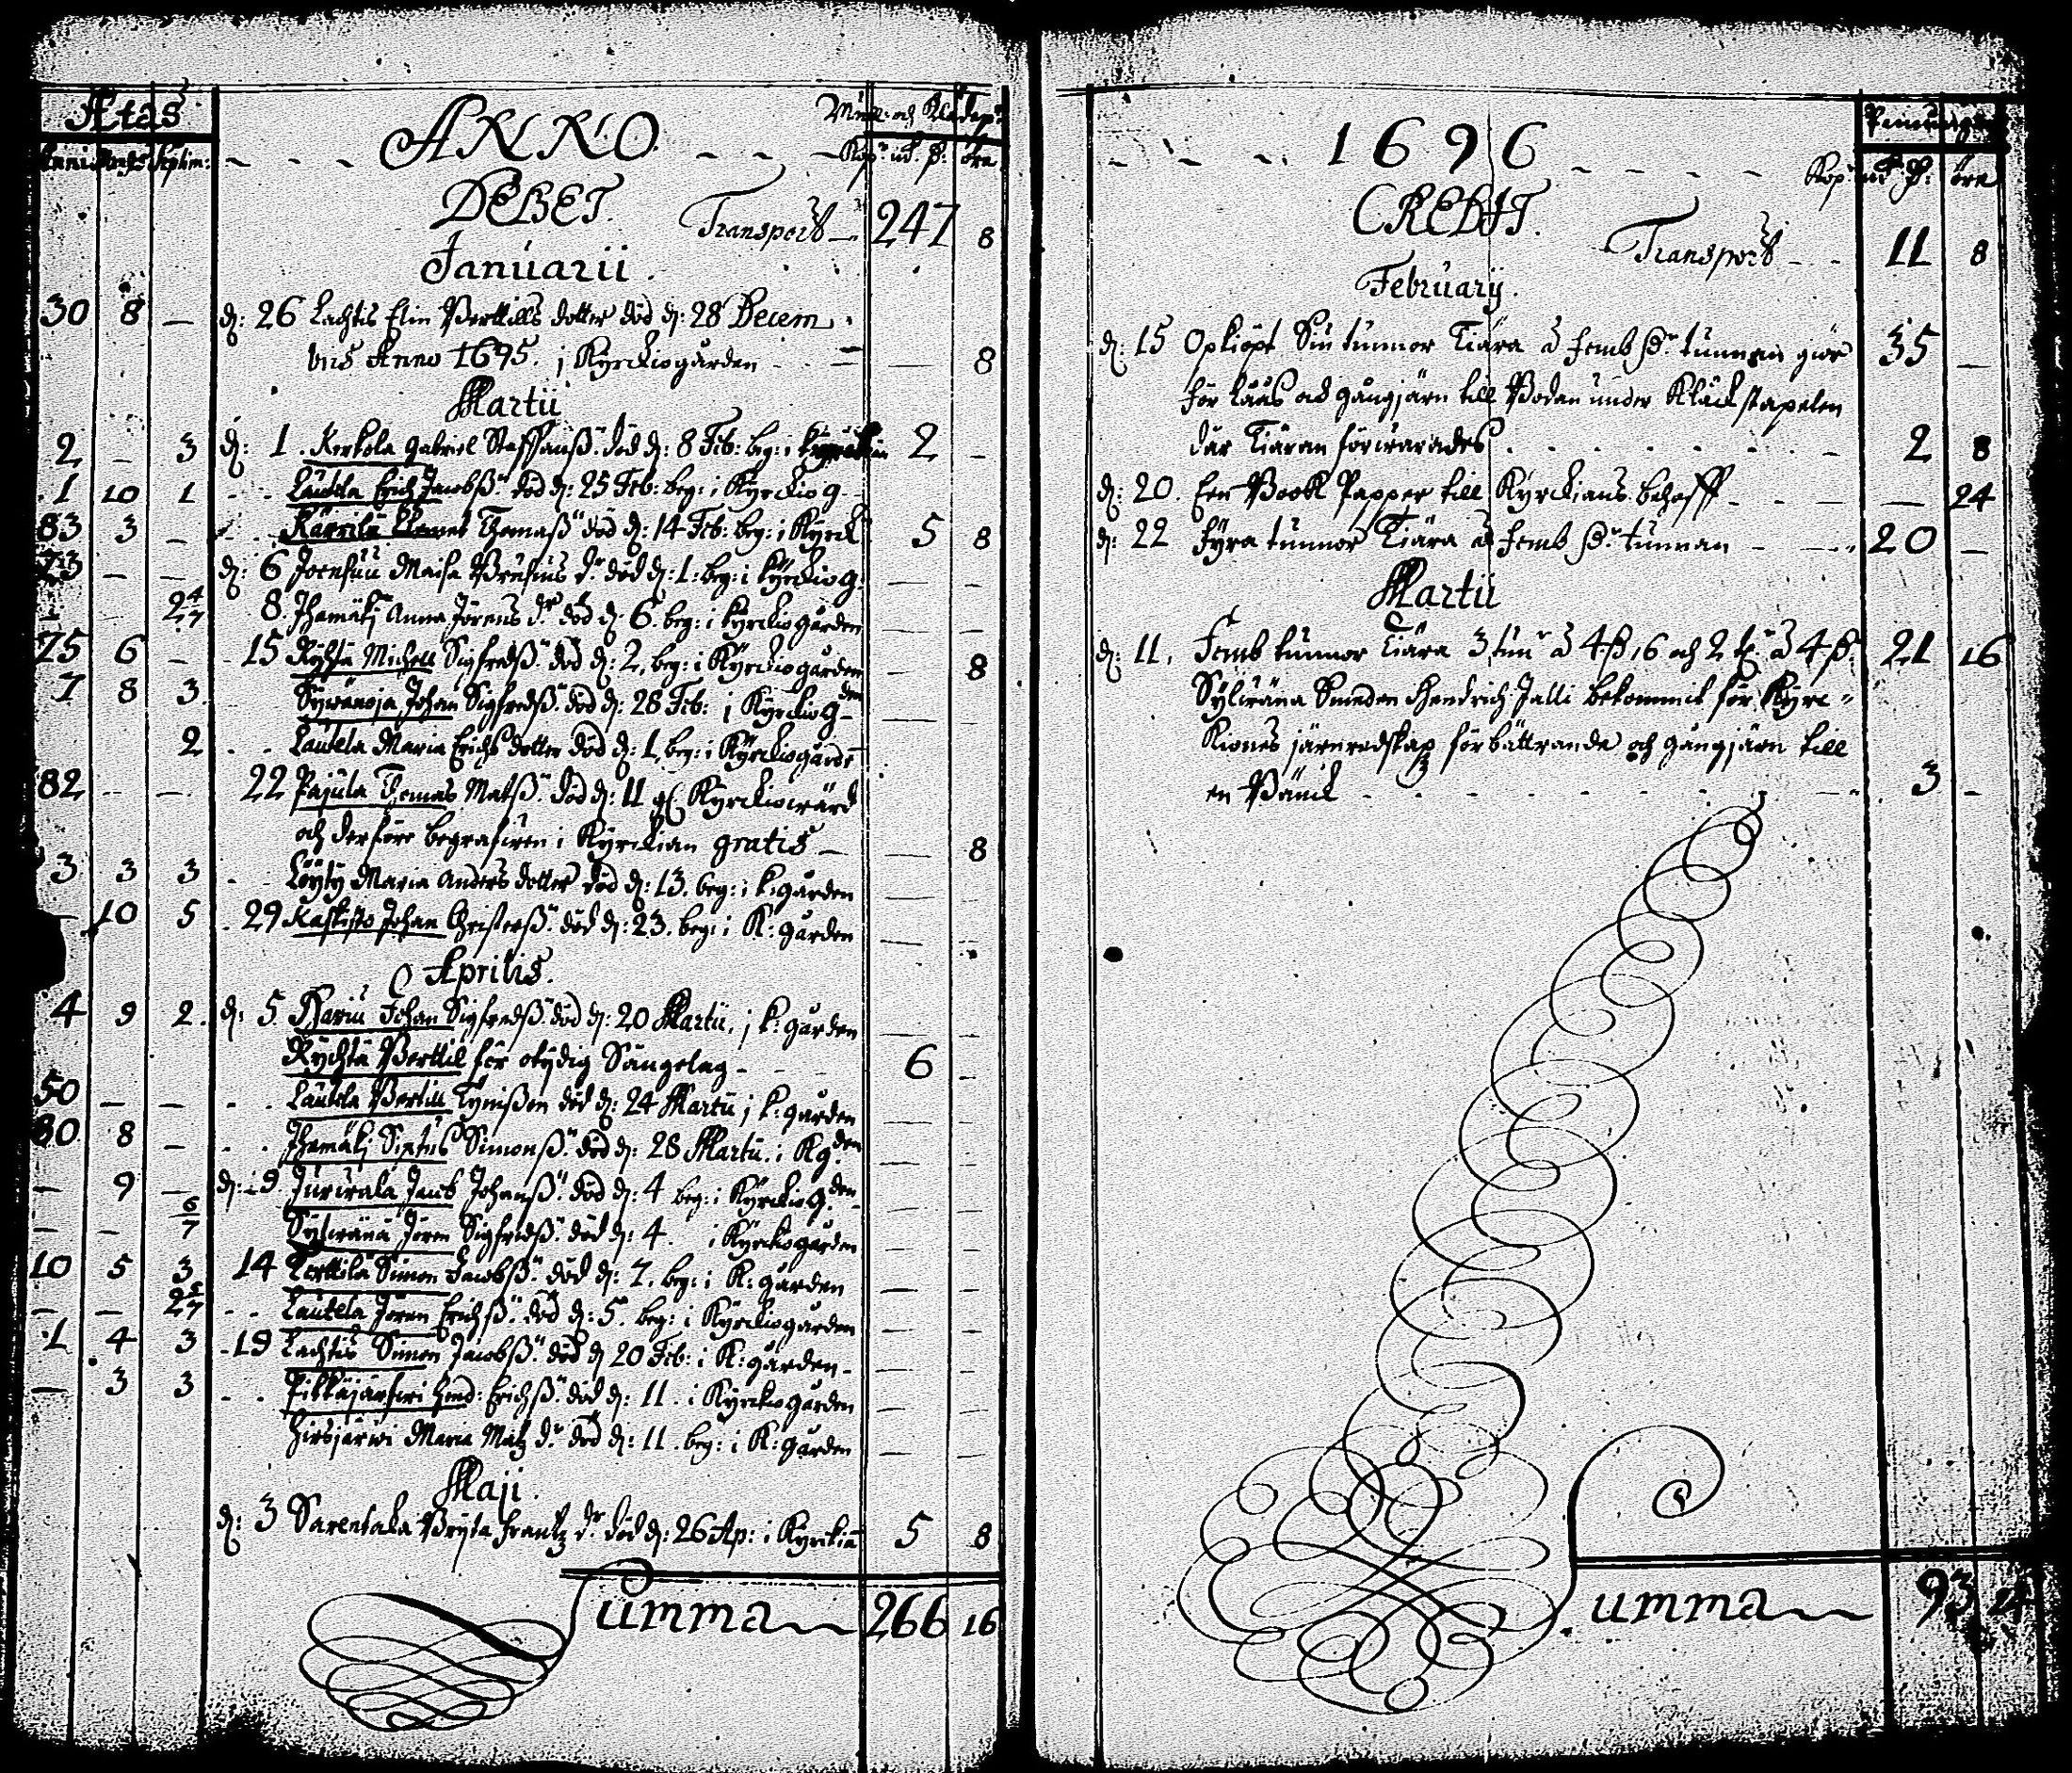 Ætas
Anni Mens Septim:
ANNO
Kop: mt. öre
DEBET.
Transport 247 8
Januarii.
30 8 — d: 26 Lachtis Elin Bertills dotter död d: 28 Decem
bris Anno 1695. j Kyrckiogården — 8
Martii
2 — 3 d: 1. Kerkola Gabriel Staffanß. död d: 8 Feb: beg: i 2 —
1 10 1 Lautela Erich Jacobß. död d: 25 Feb: beg: i Kyrckiog
83 3 — Thomaß död d: 14 Feb: beg: i Kyrck 5 8
73 — — d: 6 Joensuu Maisa dr död d: 1: beg: i Kyrckiog: — —
2 4/7 8. Anna Jörens dr död d: 6. beg: i kyrckiogården — —
75 6 — 15 Rychtä Michell Sigfredß. död d: 2. beg: i Kyrckiogården — 8
7 8 3. Sywänoja Johan Sigfredß. död d: 28 Feb: j Kyrckiogden — —
2 Lautela Maria Erichs dotter död d: 1. beg: i Kyrckiogård
82 — — 22 Pajula Tomas Matß. död d: 11 Kyrckiowärd
och derföre begrafwen i Kyrckian gratis — — 8
3 3 3 Löyty Maria Anders dotter död d: 13. beg: i k:gården — —
— 10 5 29 Kaskisto Johan Christerß. död d: 23. beg: i K: gården — —
Aprilis.
4 9 2. d: 5 Harju Johan Sigfredß. död d: 20 Martii, j k: gården — —
Rychtä Bertill för otydig Sängelag 6 —
50 — — Lautela Bertill död d: 24 Martii j k: gården — —
80 8 — Sixtus Simonß. död d: 28 Martii. i Kg.den — —
— 9 — d: 9 Juwala Jacob Johanß. död d: 4 beg: i Kyrckiog.den — —
— — 6/7 Sylwänä Jören Sigfredß. död d: 4. i Kyrckogården — —
10 5 3 14 Torttila Simon Jacobß. död d: 7. beg: i K: gården — —
— — 2 5/7 Lautela Jören Erichß. död d: 5. beg: i Kyrckiogården — —
1 4 3 19 Lachtis Simon Jacobß. död d 20 Feb: i K: gården — —
— 3 3 Pitkäjärfwi Hend: Erichß. död d: 11. i Kyrckogården — —
Hirsjärwi Maria Matz dr död d: 11. beg: i K: gården — —
Maji.
d: 3 Sarensala Brita Frantz dr död d: 26 Ap: i Kyrckiã 5 8
Summa 266 16
1696
Penningar
Kop: mt. öre
CREDIT.
Transport 11 8
February.
d: 15 Opkiöpt Siu tunnor Tiära à femb tunnan giör 35 —
för Låås och gångjärn till Bodan under Kläckstapelen
där Tiäran förwarades 2 8
d: 20. Een Book Papper till Kyrckians behoff — 24
d: 22 fyra tunnor Tiära à femb tunnan 20 —
Martii
d: 11. Femb tunnor Tiära 3 tun à 4 16 och 2 à 4 21 16
Sylwäna Smeden Hendrich Jalli bekommit för Kyrc-
kiones järnredskap förbättrande och gångjärn till
en Bänck 3 —
Summa 93